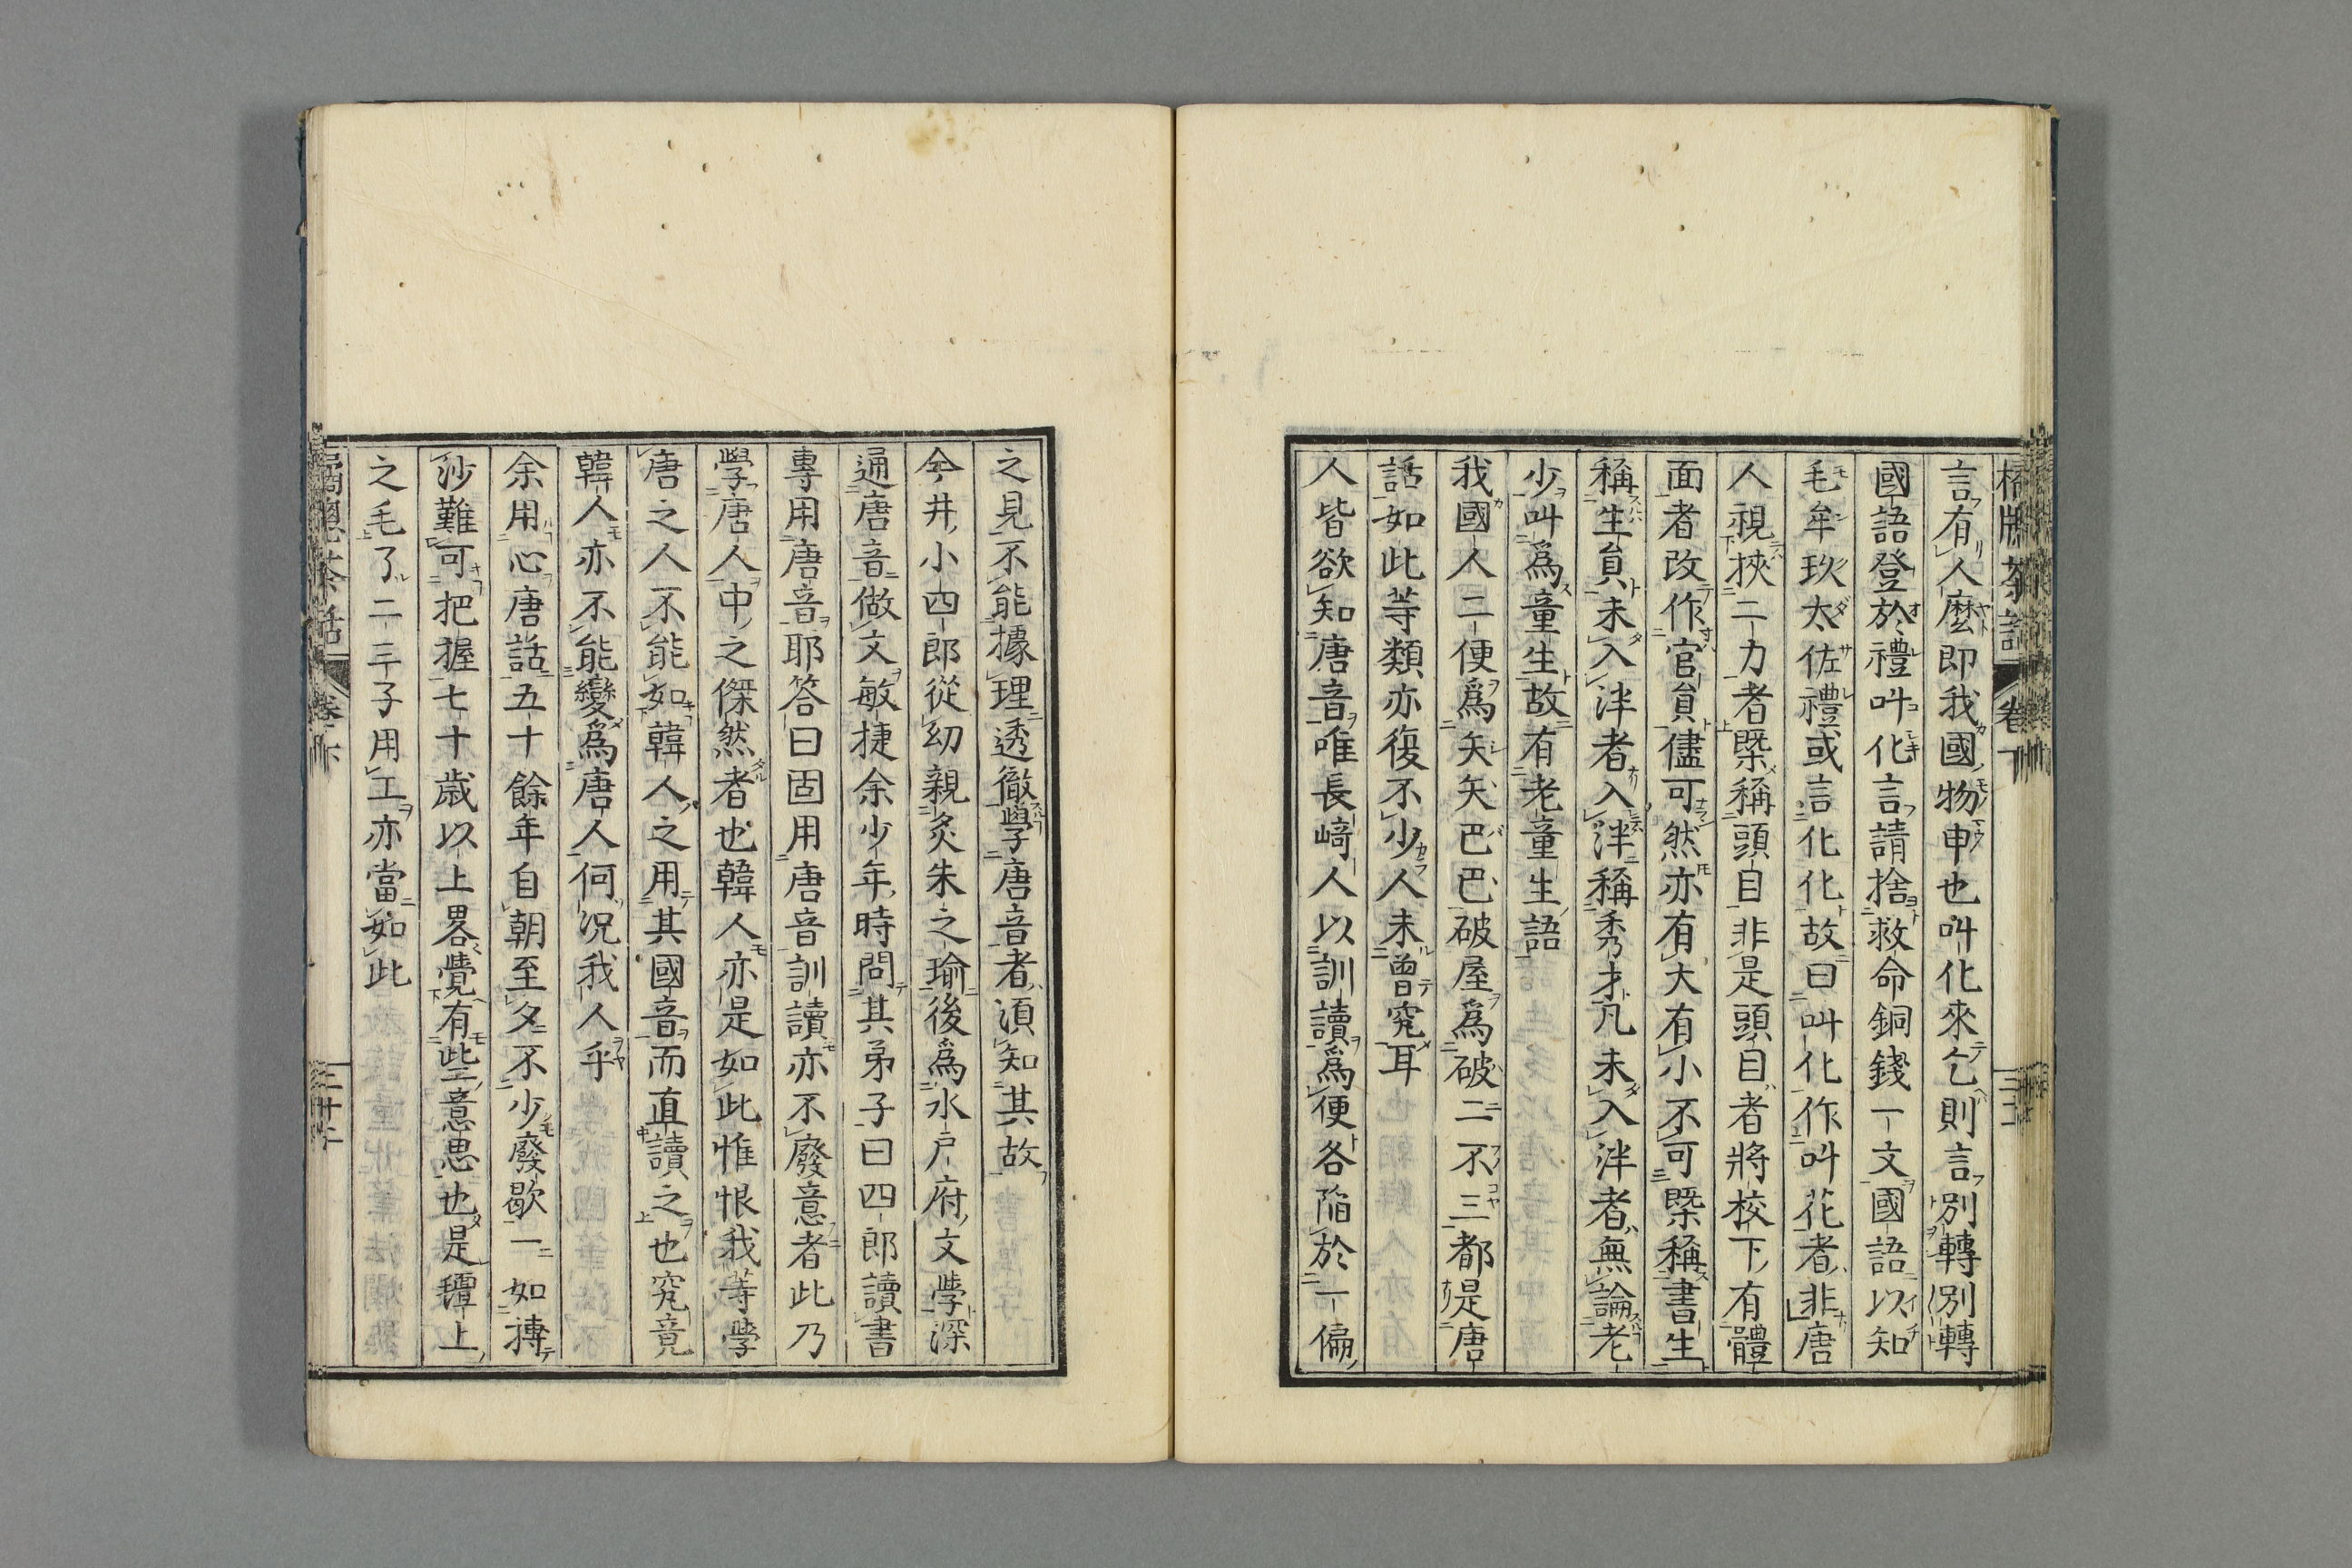 言有人麼即我國物申也叫化來乞則言別轉別轉
國語登於禮叫化言請捨救命銅錢一文國語以知
毛牟玖太佐禮或言化化故曰叫化作叫花者非唐
人視挾二力者槩稱頭目非是頭目者將校下有體
面者改作官員儘可然亦有大有小不可槩稱書生
稱生員未入泮者入泮稱秀才凡未入泮者無論老
少叫爲童生故有老童生語
我國人二便爲矢矢巴巴破屋爲破二不三都是唐
話如此等類亦復不少人未曾究耳
人皆欲知唐音唯長崎人以訓讀爲便各陷於一偏
之見不能據理透徹學唐音者須知其故
今井小四郎從幼親炙朱之瑜後爲水戶府文學深
通唐音做文敏捷余少年時問其弟子曰四郎讀書
專用唐音耶答曰固用唐音訓讀亦不廢意者此乃
學唐人中之傑然者也韓人亦是如此惟恨我等學
唐之人不能如韓人之用其國音而直讀之也究竟
韓人亦不能變爲唐人何況我人乎
余用心唐話五十餘年自朝至夕不少廢歇一如摶
沙難可把握七十歲以上畧覺有些意思也是氈上
之毛了二三子用工亦當如此